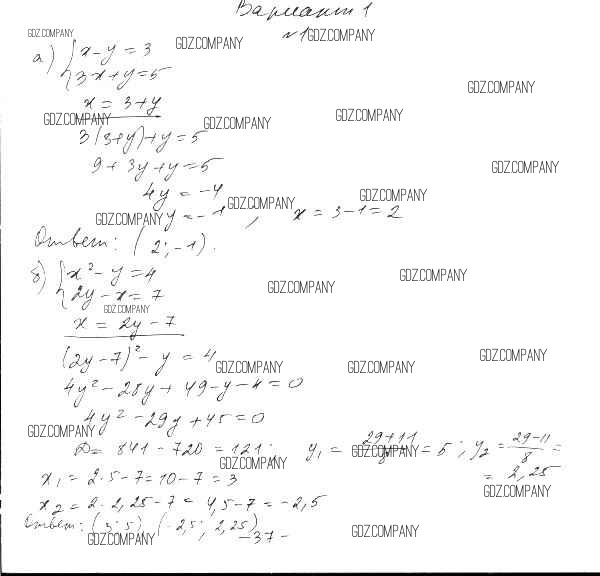 Вариант 1
GDZ.COMPANY
GDZ.COMPANY
№1 GDZ.COMPANY
а) { x - y = 3
3x + y = 5
GDZ.COMPANY
x = 3 + y
GDZ.COMPANY
GDZ.COMPANY
GDZ.COMPANY
3(3+y) + y = 5
9 + 3y + y = 5
GDZ.COMPANY
4y = -4
GDZ.COMPANY
GDZ.COMPANY
GDZ.COMPANY
y = -1, x = 3 - 1 = 2
Ответ: (2; -1).
б) { x² - y = 4
2y - x = 7
GDZ.COMPANY
GDZ.COMPANY
GDZ.COMPANY
x = 2y - 7
(2y - 7)² - y = 4
GDZ.COMPANY
GDZ.COMPANY
GDZ.COMPANY
4y² - 28y + 49 - y - 4 = 0
4y² - 29y + 45 = 0
GDZ.COMPANY
D = 841 - 720 = 121; y₁ = (29+11)/8 = 5; y₂ = (29-11)/8 =
= 2,25
GDZ.COMPANY
GDZ.COMPANY
x₁ = 2·5 - 7 = 10 - 7 = 3
GDZ.COMPANY
x₂ = 2·2,25 - 7 = 4,5 - 7 = -2,5
Ответ: (3; 5), (-2,5; 2,25)
GDZ.COMPANY
-37-
GDZ.COMPANY